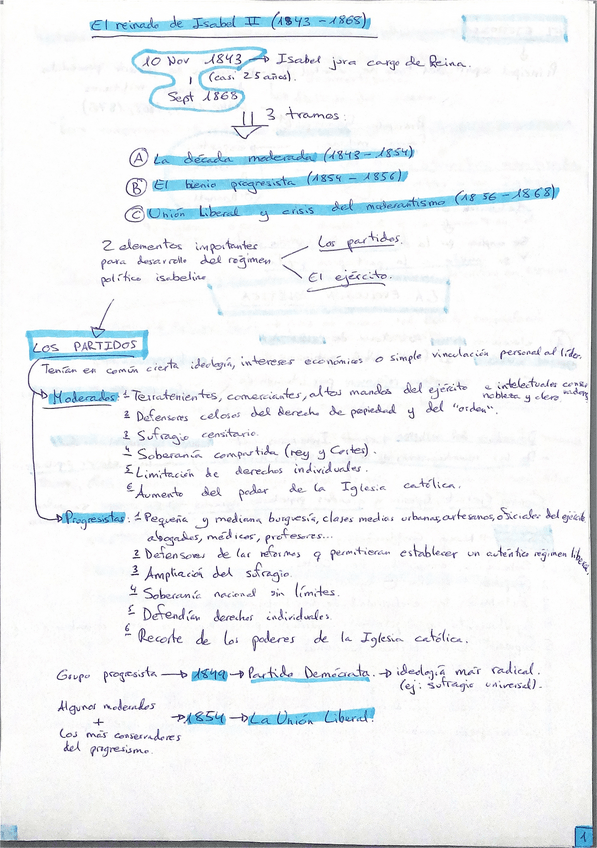 El reinado de Isabel II (1843 - 1868)
10 Nov 1843 → Isabel jura cargo de Reina.
(casi 25 años).
Sept 1868
3 tramos:
A La década moderada (1843 - 1854)
B El bienio progresista (1854 - 1856)
C Unión Liberal y crisis del moderantismo (1856 - 1868)
2 elementos importantes
para desarrollo del régimen
político isabelino
Los partidos.
El ejército.
LOS PARTIDOS
Tenían en común cierta ideología, intereses económicos o simple vinculación personal al líder.
Moderados: 1 Terratenientes, comerciantes, altos mandos del ejército e intelectuales conser
nobleza y clero. vadores
2 Defensores celosos del derecho de propiedad y del "orden".
3 Sufragio censitario.
4 Soberanía compartida (rey y Cortes).
5 Limitación de derechos individuales.
6 Aumento del poder de la Iglesia católica.
Progresistas: 1 Pequeña y mediana burguesía, clases medias urbanas, artesanos, oficiales del ejército
abogados, médicos, profesores...
2 Defensores de las reformas q permitieran establecer un auténtico régimen liberal.
3 Ampliación del sufragio.
4 Soberanía nacional sin límites.
5 Defendían derechos individuales.
6 Recorte de los poderes de la Iglesia católica.
Grupo progresista → 1849 → Partido Demócrata. → ideología más radical.
(ej: sufragio universal).
Algunos moderados
+
Los más conservadores
del progresismo.
→ 1854 → La Unión Liberal.
1